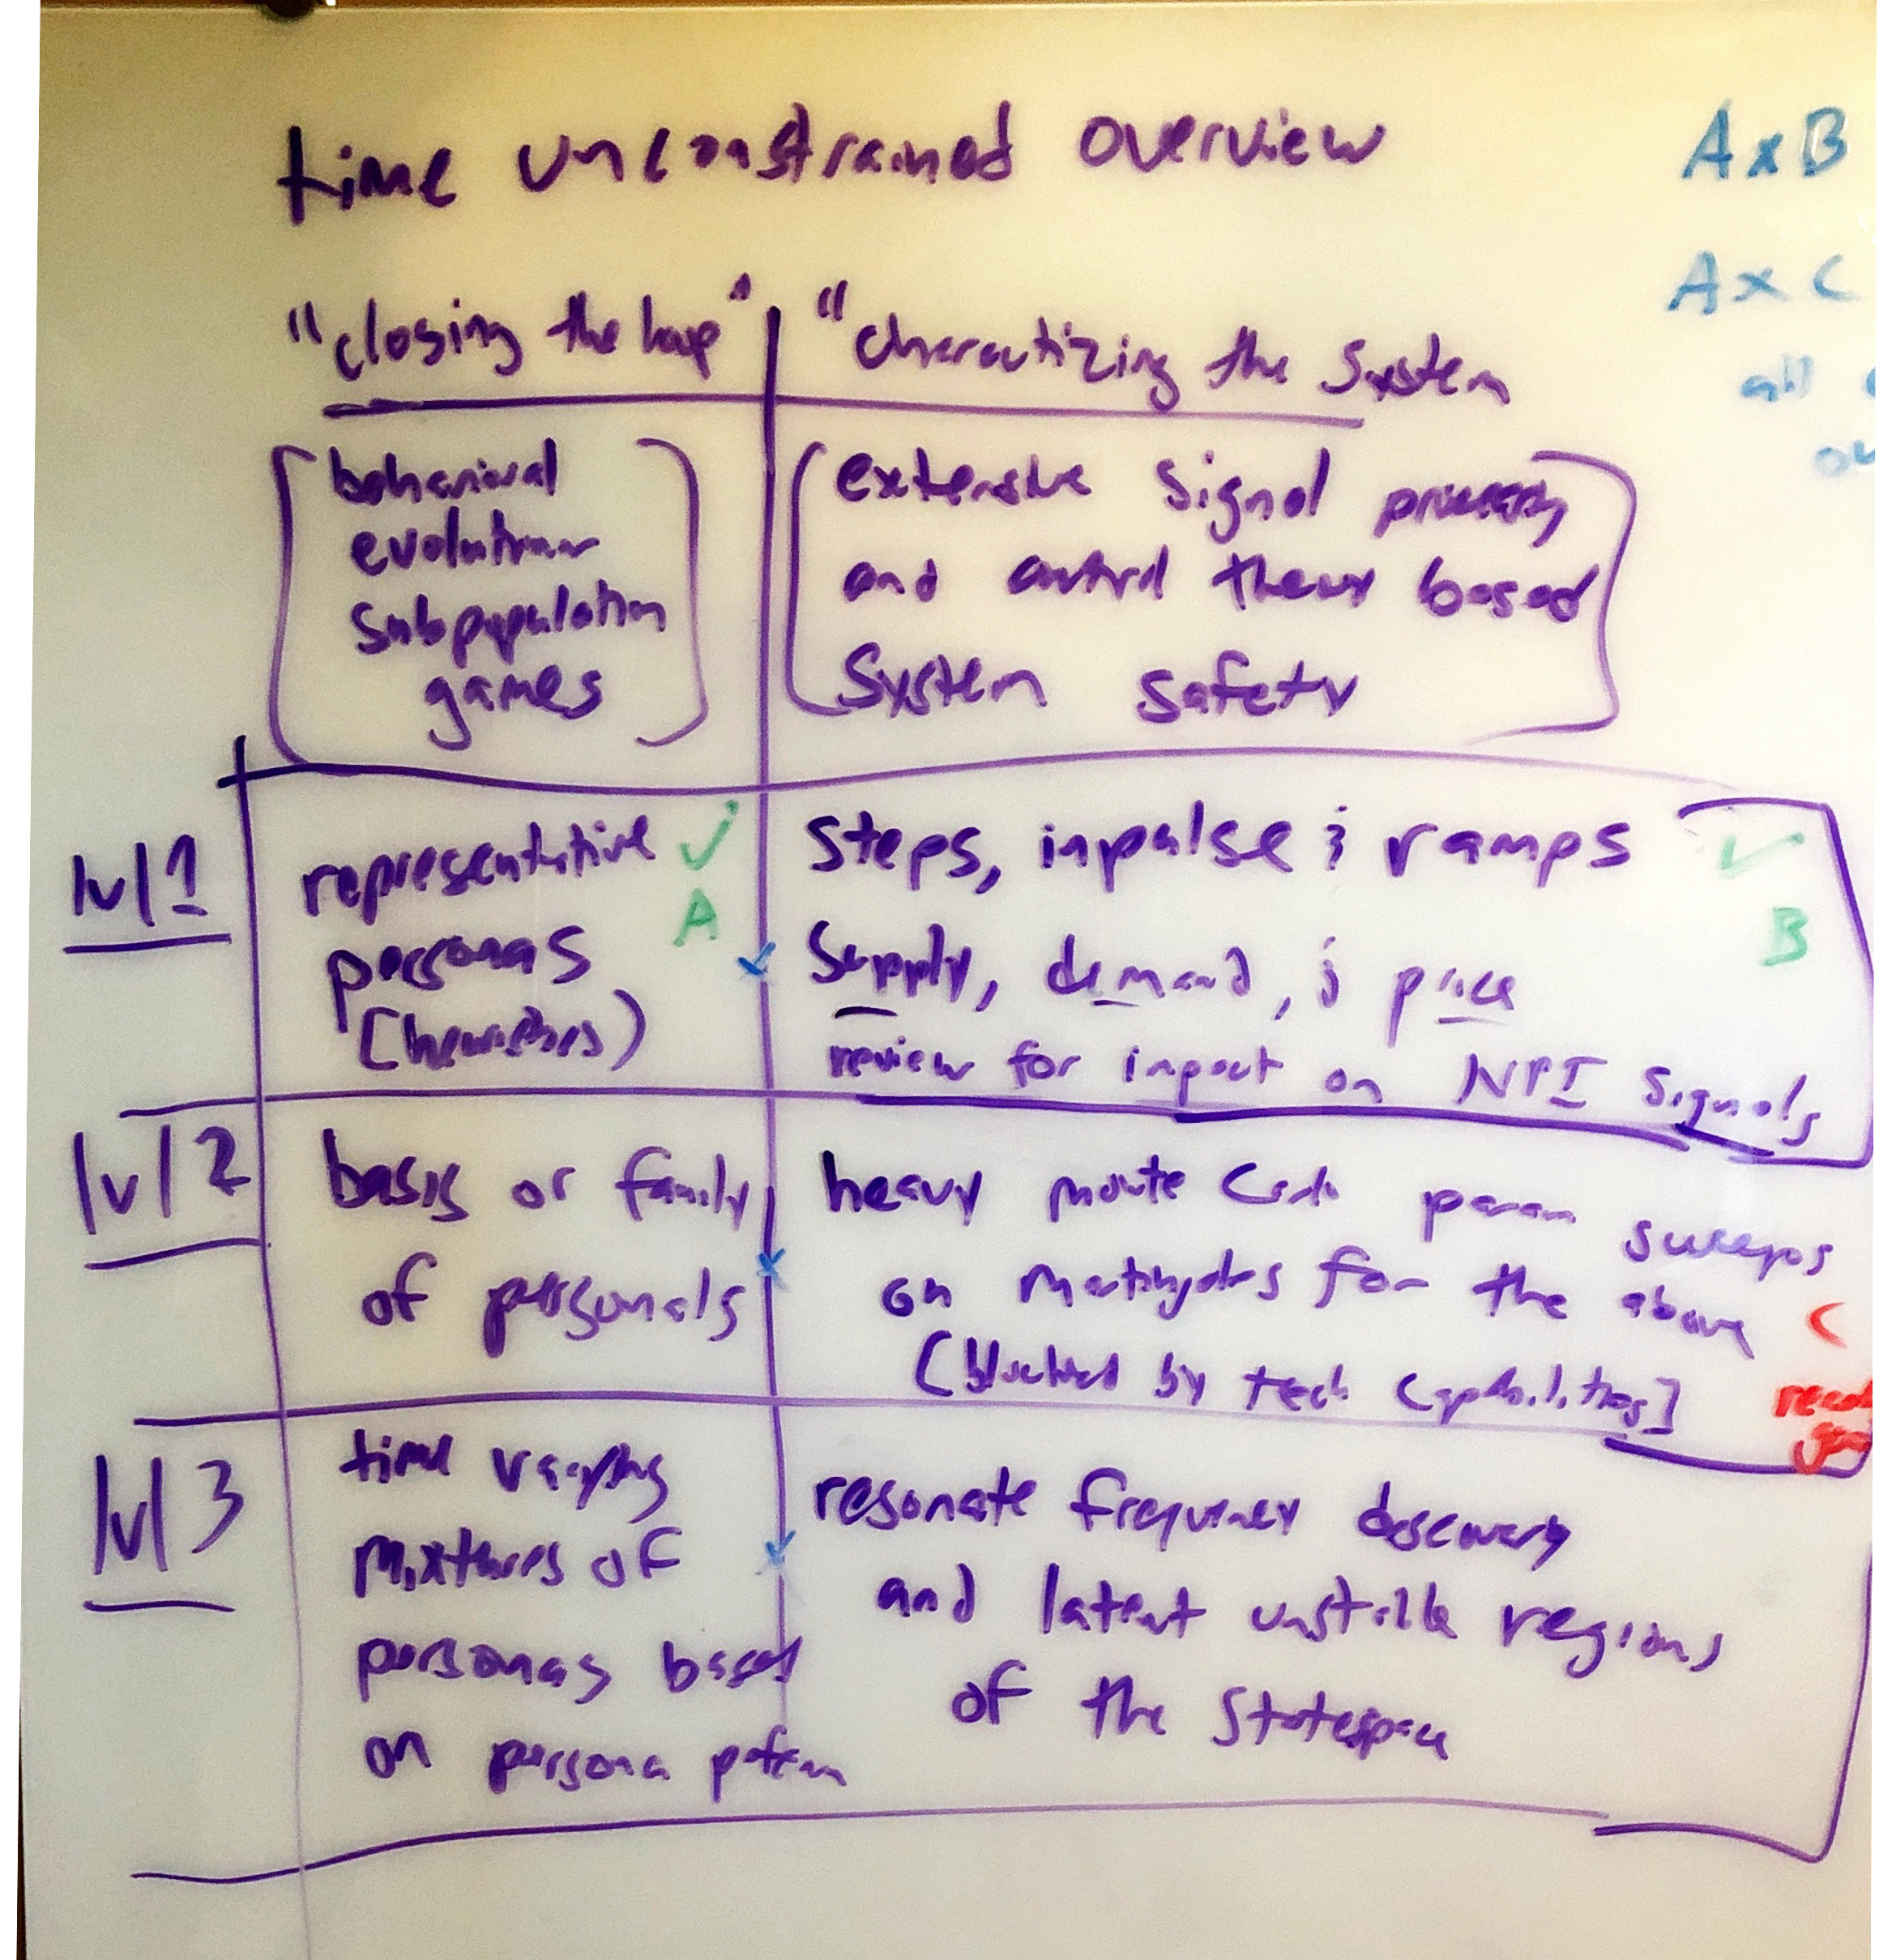 time unconstrained overview
A x B
A x C
all
"closing the loop"
"charactizing the System
behavioral
evolutionar
subpopulation
games
extensive signal
and control theory based
System Safety
lvl 1
representative ✓
A
personas
(heuristics)
Steps, inpulse & ramps ✓
B
Supply, demand, & price
review for impact on NPI Signals
lvl 2
basis or family
of personals
heavy monte Carlo param sweeps
on for the above
(blocked by tech capabilities]
C
lvl 3
time varying
mixtures of
personas based
on persona
resonate frequency discovery
and latent unstable regions
of the Statespace